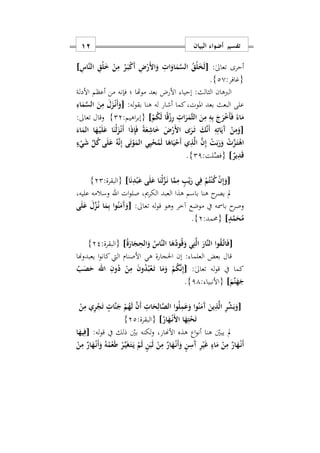 ١٢ تفسير أضواء البيان
أخرى تعالى: [لَخَلْقُ السَّمَاوَاتِ وَالأَرْضِ أَكْبَرُ مِنْ خَلْقِ النَّاسِ]
{غافر:٥٧}.
البرهان الثالث: إحياء الأرض بعد موتها؛ فإنه من أعظم الأدلة
على البعث بعد الموت، كما أشار له هنا بقوله: [وَأَنْزَلَ مِنَ السَّمَاءِ
مَاءً فَأَخْرَجَ بِهِ مِنَ الثَّمَرَاتِ رِزْقًا لَكُمْ] {إبراهيم:٣٢} وقال تعالى:
[وَمِنْ آَيَاتِهِ أَنَّكَ تَرَى الأَرْضَ خَاشِعَةً فَإِذَا أَنْزَلْنَا عَلَيْهَا المَاءَ
اهْتَزَّتْ وَرَبَتْ إِنَّ الَّذِي أَحْيَاهَا لَمُحْيِي المَوْتَى إِنَّهُ عَلَى كُلِّ شَيْءٍ
قَدِيرٌ] {فصِّلت:٣٩}.
[وَإِنْ كُنْتُمْ فِي رَيْبٍ مِمَّا نَزَّلْنَا عَلَى عَبْدِنَا] {البقرة:٢٣}
لم يصرح هنا باسم هذا العبد الكريم، صلوات الله وسلامه عليه،
وصرح باسمه في موضع آخر وهو قوله تعالى: [وَآَمَنُوا بِمَا نُزِّلَ عَلَى
مُحَمَّدٍ] {محمد:٢}.
[فَاتَّقُوا النَّارَ الَّتِي وَقُودُهَا النَّاسُ وَالحِجَارَةُ] {البقرة:٢٤}
قال بعض العلماء: إن الحجارة هي الأصنام التي كانوا يعبدونها
كما في قوله تعالى: [إِنَّكُمْ وَمَا تَعْبُدُونَ مِنْ دُونِ اللهِ حَصَبُ
جَهَنَّمَ] {الأنبياء:٩٨}.
[وَبَشِّرِ الَّذِينَ آَمَنُوا وَعَمِلُوا الصَّالِحَاتِ أَنَّ لَهُمْ جَنَّاتٍ تَجْرِي مِنْ
تَحْتِهَا الأَنْهَارُ] {البقرة:٢٥}
لم يبيّن هنا أنواع هذه الأنهار، ولكنه بيّن ذلك في قوله: [فِيهَا
أَنْهَارٌ مِنْ مَاءٍ غَيْرِ آَسِنٍ وَأَنْهَارٌ مِنْ لَبَنٍ لَمْ يَتَغَيَّرْ طَعْمُهُ وَأَنْهَارٌ مِنْ